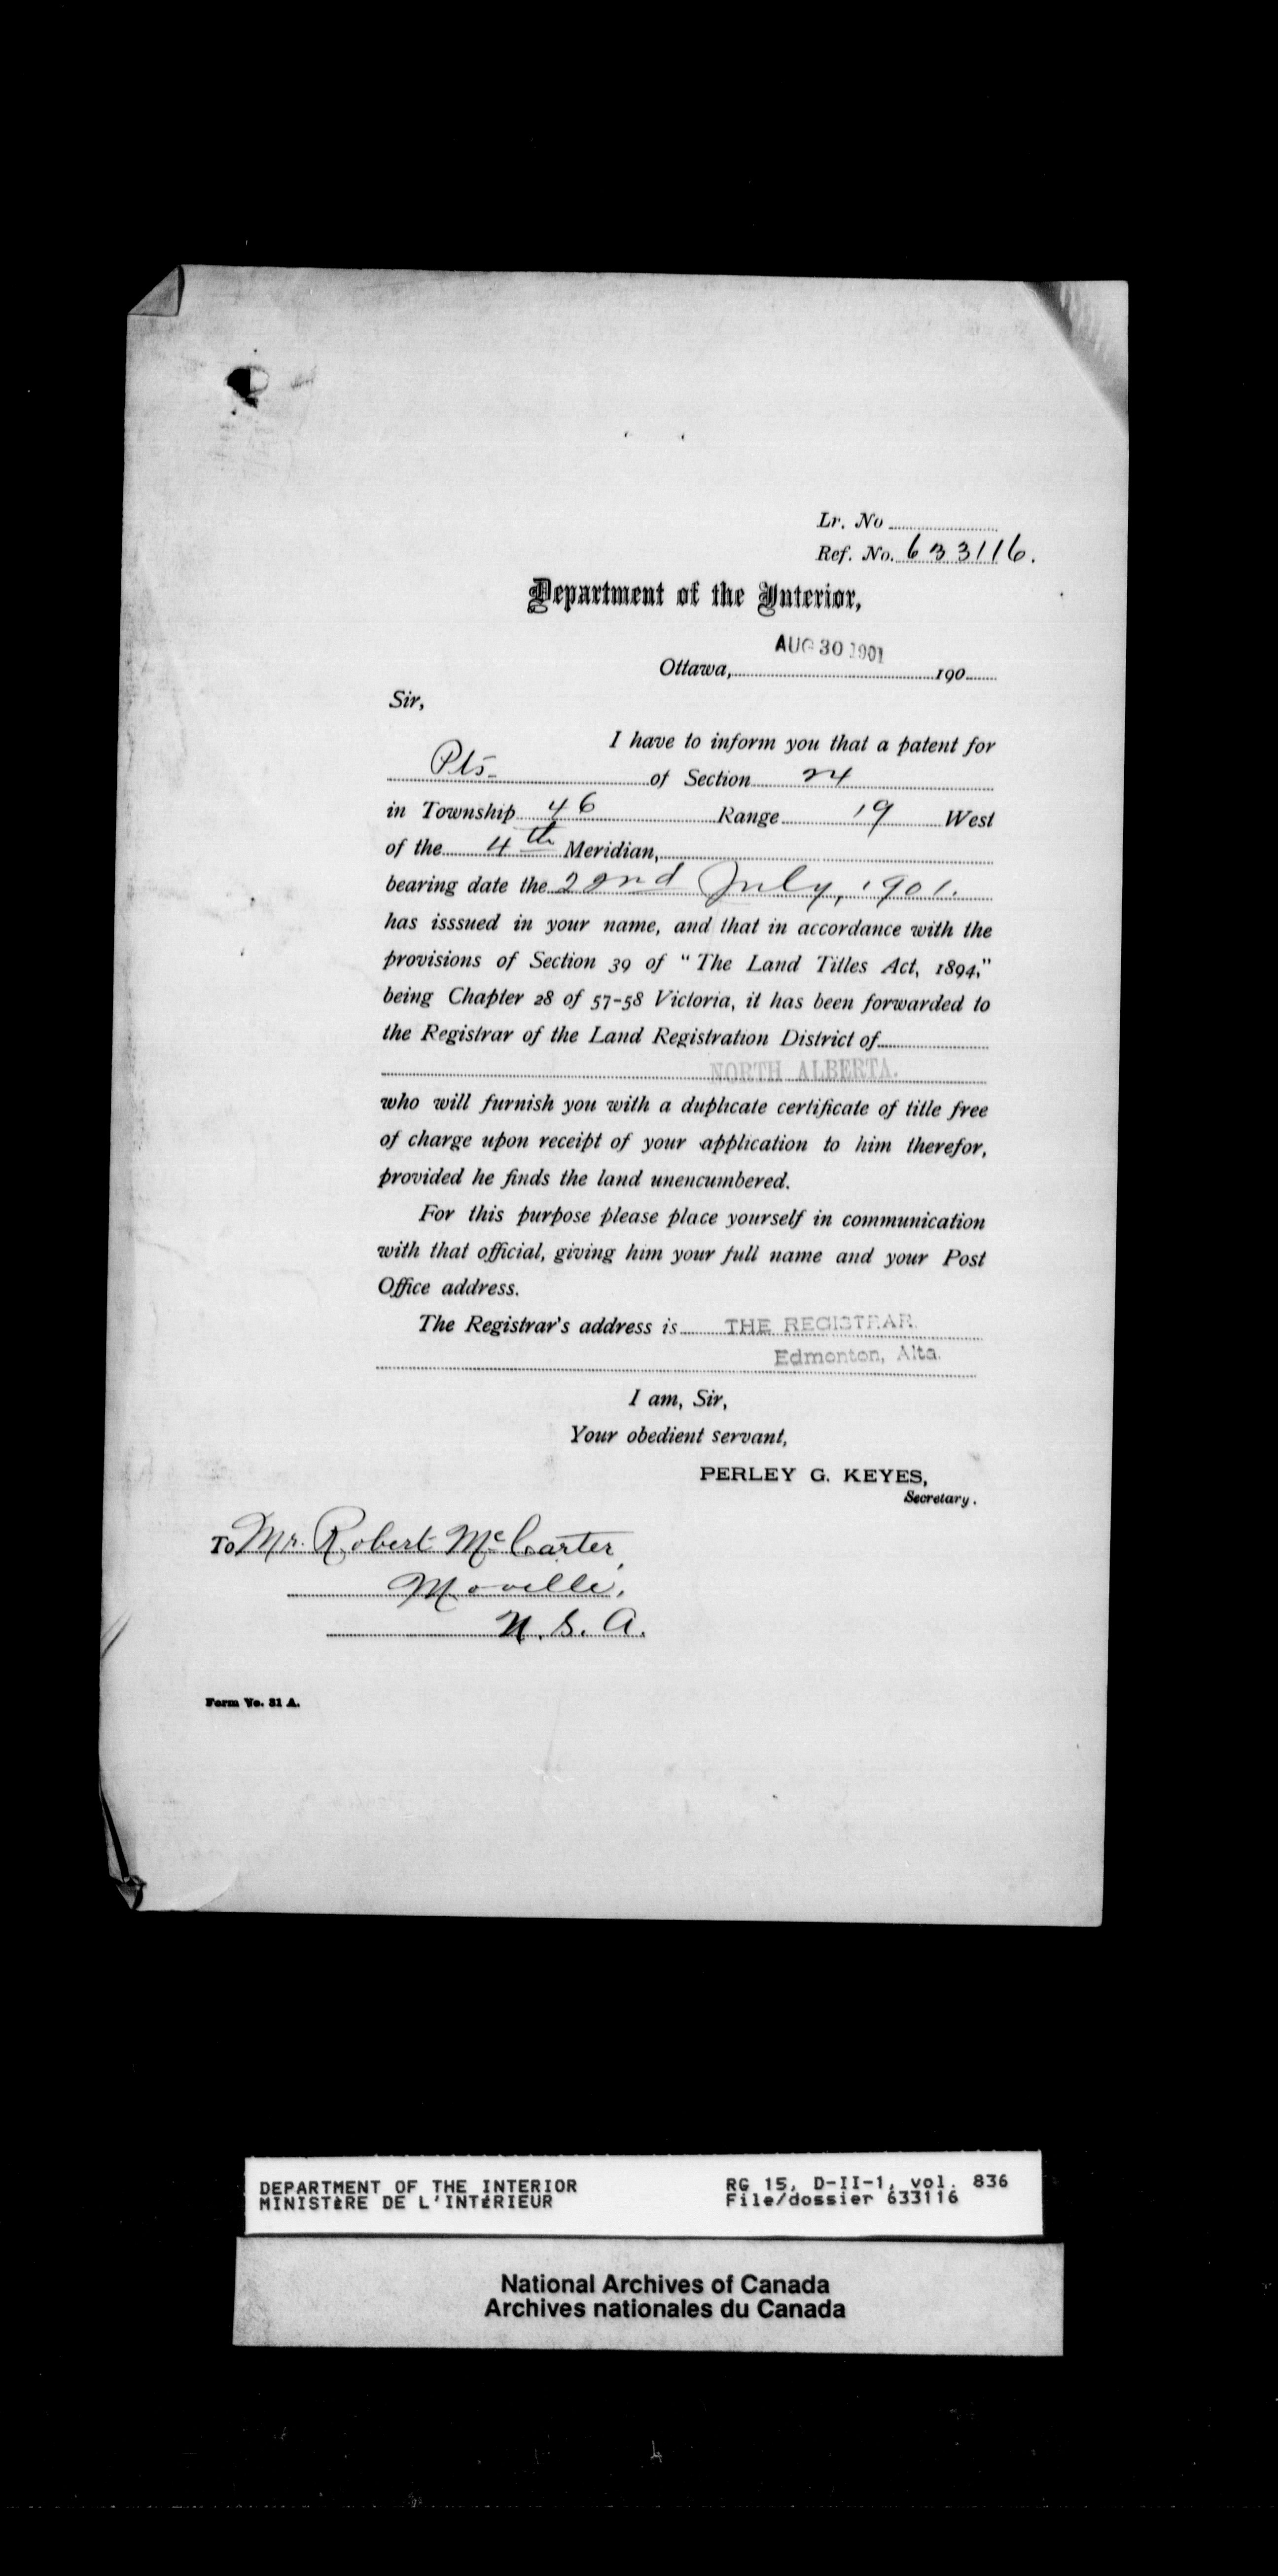 Lr. No
Ref. No. 633116.
Department of the Interior,
AUG 30 1901
Ottawa, 190
Sir,
I have to inform you that a patent for
Pts- of Section 24
in Township 46 Range 19 West
of the 4th Meridian,
bearing date the 22nd July, 1901.
has isssued in your name, and that in accordance with the
provisions of Section 39 of "The Land Titles Act, 1894,"
being Chapter 28 of 57-58 Victoria, it has been forwarded to
the Registrar of the Land Registration District of
NORTH ALBERTA.
who will furnish you with a duplicate certificate of title free
of charge upon receipt of your application to him therefor,
provided he finds the land unencumbered.
For this purpose please place yourself in communication
with that official, giving him your full name and your Post
Office address.
The Registrar's address is THE REGISTRAR
Edmonton, Alta.
I am, Sir,
Your obedient servant,
PERLEY G. KEYES,
Secretary.
To Mr. Robert McCarter,
Moville,
U.S.A.
Form No. 31 A.
DEPARTMENT OF THE INTERIOR RG 15, D-II-1, vol. 836
MINISTÈRE DE L'INTÉRIEUR File/dossier 633116
National Archives of Canada
Archives nationales du Canada